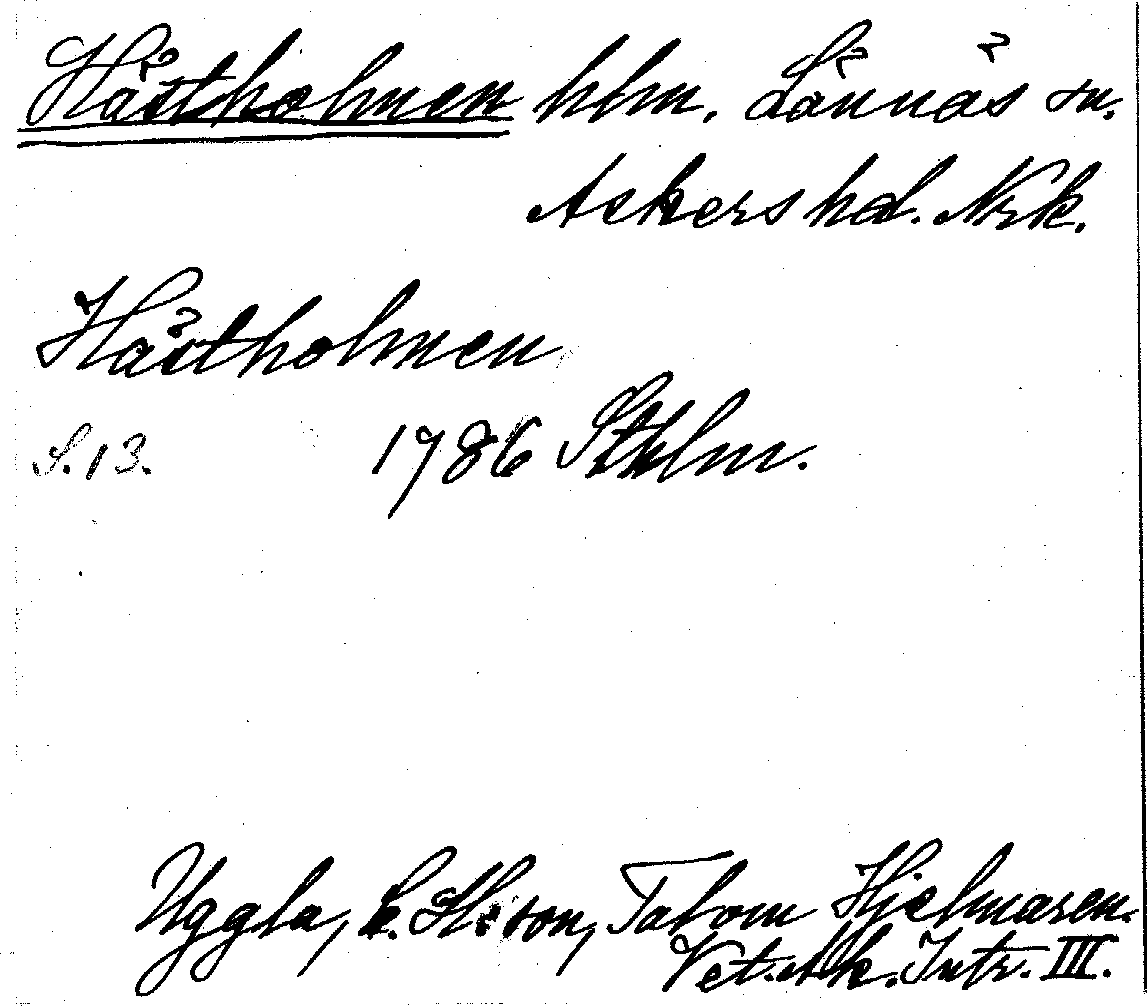 Hästholmen hlm. Lännäs sn.
Askers hd. Nrk.
Hästholmen
S. 13. 1786 Sthlm.
Uggla, C. Hr:son, Tal om Hjelmaren.
Vet. Ak. Intr. III.